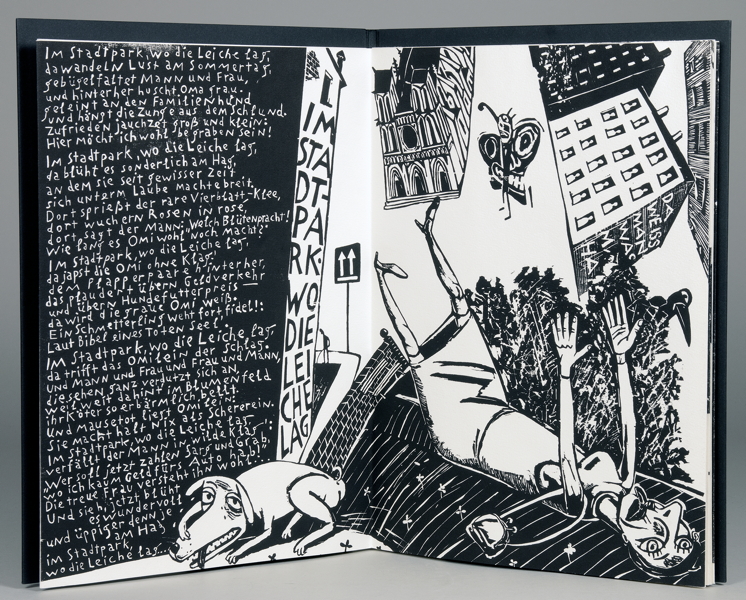 Im Stadtpark, wo die Leiche lag,
da wandeln Lust am Sommertag,
gebügelfaltet Mann und Frau,
und hinterher huscht Oma grau.
geleint an den Familienhund
und hängt die Zunge aus dem Schlund.
Zufrieden jauchzet groß und klein:
Hier möcht ich wohl begraben sein!
Im Stadtpark, wo die Leiche lag,
da blüht es sonderlich am Hag,
an dem sie seit gewisser Zeit
sich unterm Laube machte breit,
Dort sprießt der rare Vierblatt-Klee,
dort wuchern Rosen in rosé,
dort sagt der Mann: Welch Blütenpracht!
Wie lang es Omi wohl noch macht?
Im Stadtpark, wo die Leiche lag,
da japst die Omi ohne Klag
dem Plapperpaare hinterher,
das plaudert übern Geldverkehr
und übern Hundefutterpreis —
da wird die graue Omi weiß.
Ein Schmetterling weht fort fidel!:
Laut Bibel eines Toten Seel'.
Im Stadtpark, wo die Leiche lag,
da trifft das Omilein der Schlag.
und Mann und Frau und Frau und Mann,
die sehen ganz verdutzt sich an,
weil weit dahint' im Blumenfeld
ihr Köter so erbärmlich bellt:
und mausetot liest Omi fein:
Sie macht halt nix als Scherereien
Im Stadtpark, wo die Leiche lag,
verfällt der Mann in wilde Klag:
Wer soll jetzt zahlen Sarg und Grab,
wo ich kaum Geld fürs Auto hab!?
Die treue Frau versteht ihn wohl:
Und sieh, jetzt blüht
es wundervoll
und üppiger denn je
am Hag
im Stadtpark,
wo die Leiche lag...
IM STADTPARK WO DIE LEICHE LAG